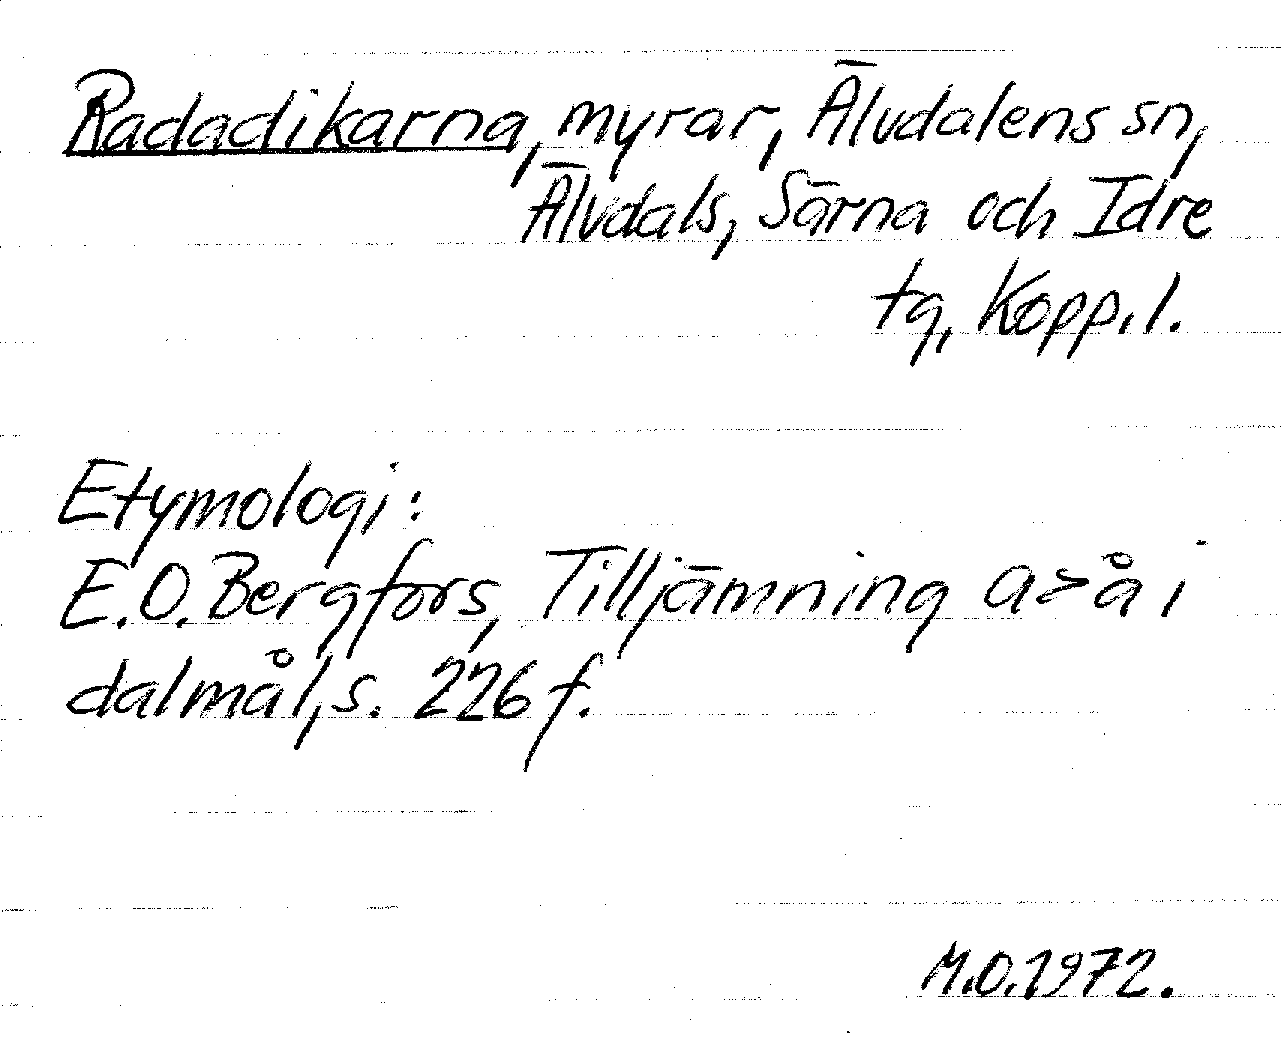 Radadikarna, myrar, Älvdalens sn,
Älvdals, Särna och Idre
tg, Kopp.l.
Etymologi:
E.O. Bergfors, Tilljämning a>å i
dalmål, s. 226 f.
M.O. 1972.